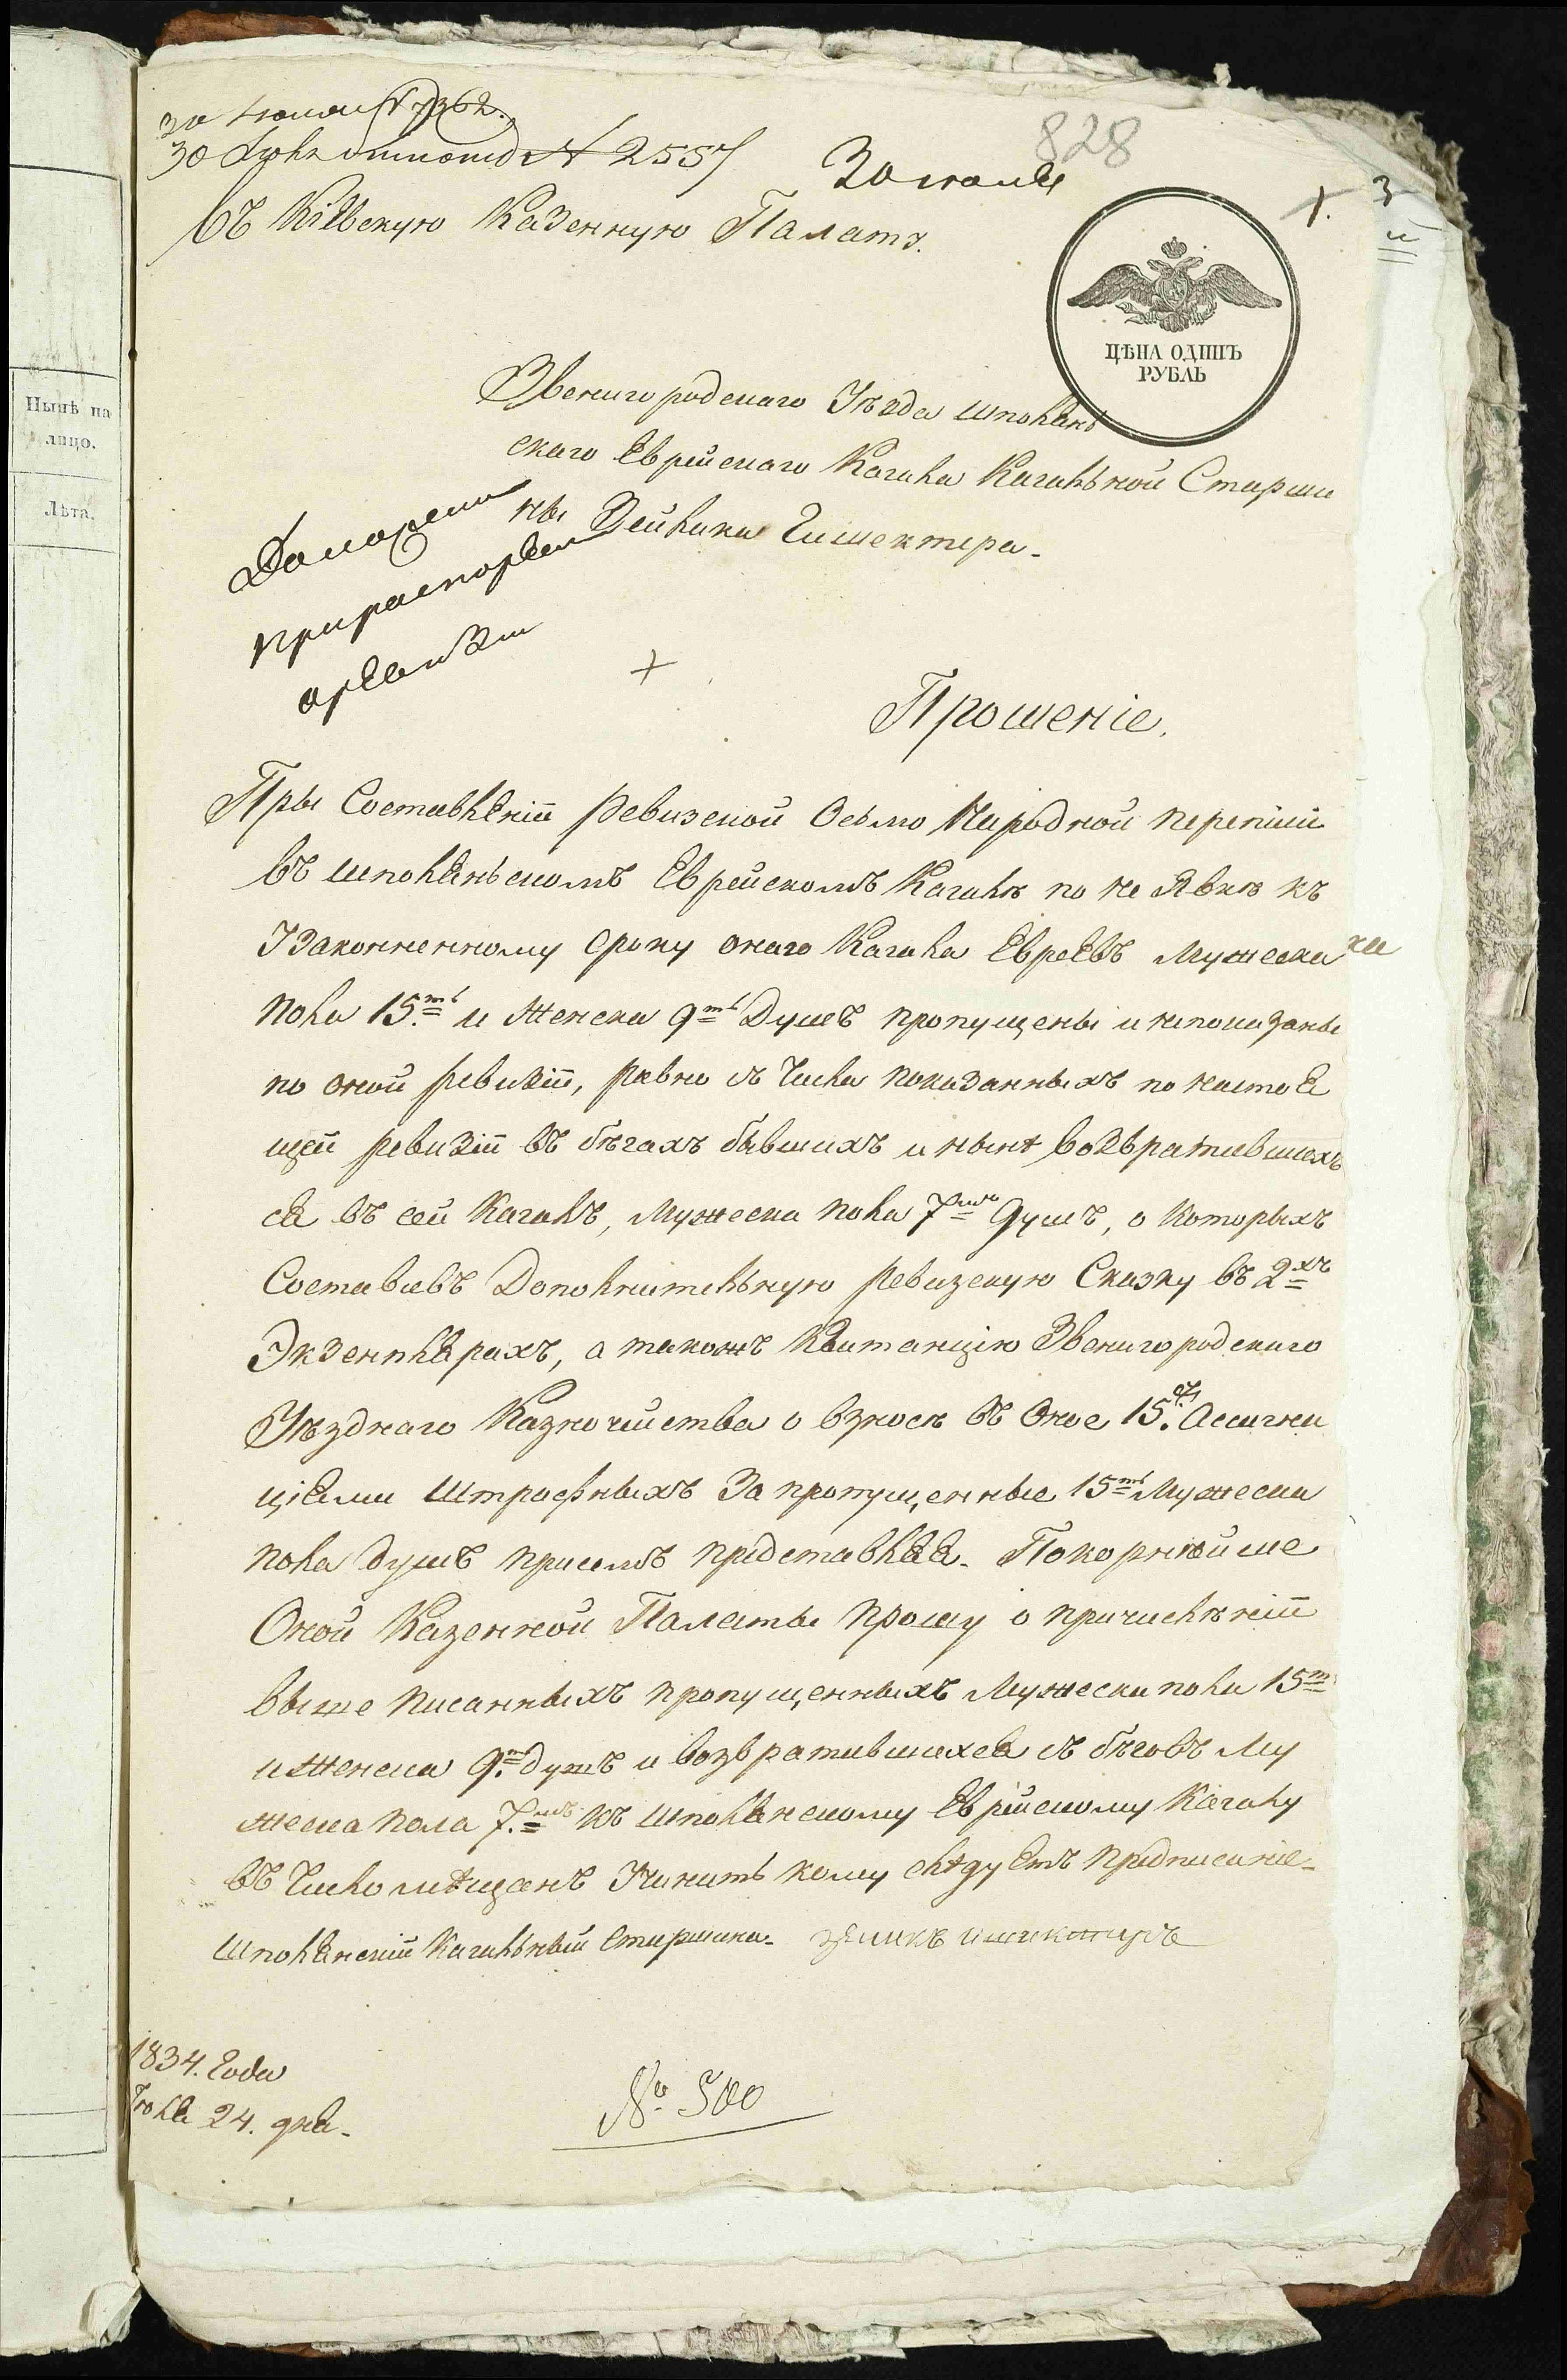 30 Июля № 7362.
30 Июля № 2557
828
30 июля
3
Въ Кіевскую Казенную Палату.
ЦѢНА ОДИНЪ
РУБЛЬ
Звенигородскаго Уѣзда Шполян
скаго Еврейскаго Кагала Кагальной Старши
ны Зейлика
Прошеніе.
Пры Составленіи Ревизской Осьмо Народной переписи
въ Шполяньскомъ Еврейскомъ Кагалѣ по не Явкѣ къ
Узаконненному Сроку онаго Кагала Евреевъ Мужеска
пола 15.ть и Женска 9ть Душъ пропущены и непоказаны
по оной ревизіи, равно съ Числа показанныхъ по настоя
щей ревизіи въ бѣгахъ бывшихъ и нынѣ возвратившихъ
ся въ сей Кагалъ, Мужеска пола 7мь Душъ, о Которыхъ
Составивъ Дополнительную Ревизскую Сказку въ 2хъ
Экземплярахъ, а такожъ Квитанцію Звенигородскаго
Уѣзднаго Казначейства о взносѣ въ Оное 15. Ассигна
ціями Штрафныхъ За пропущенные 15ть Мужеска
пола душъ присемъ представляя. Покорнѣйше
Оной Казенной Палаты Прошу о причислѣніи
выше писанныхъ пропущенныхъ Мужеска пола 15ть
и Женска 9.ть душъ и возвратившихся съ бѣговъ Му
жеска пола 7.мь къ Шполянскому Еврейскому Кагалу
въ Число мѣщанъ Учинить кому слѣдуетъ предписаніе.
Шполянскій Кагальный Старшина.
1834. Года
Іюля 24. дня.
№ 500
Нынѣ на
лицо.
Лѣта.